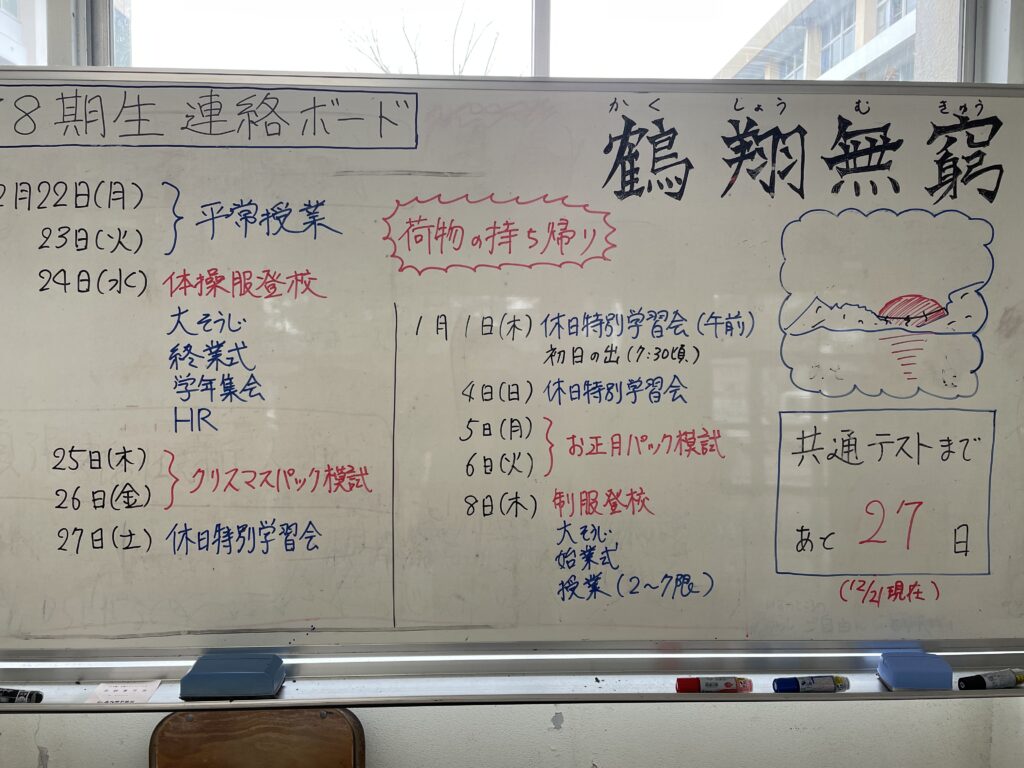 8期生 連絡ボード
かく しょう む きゅう
鶴翔無窮
2月22日(月)
23日(火)
平常授業
24日(水) 体操服登校
大そうじ
終業式
学年集会
HR
25日(木)
26日(金)
クリスマスパック模試
27日(土) 休日特別学習会
荷物の持ち帰り
1月1日(木) 休日特別学習会(午前)
初日の出(7:30頃)
4日(日) 休日特別学習会
5日(月)
6日(火)
お正月パック模試
8日(木) 制服登校
大そうじ
始業式
授業(2〜7限)
共通テストまで
あと 27 日
(12/21現在)